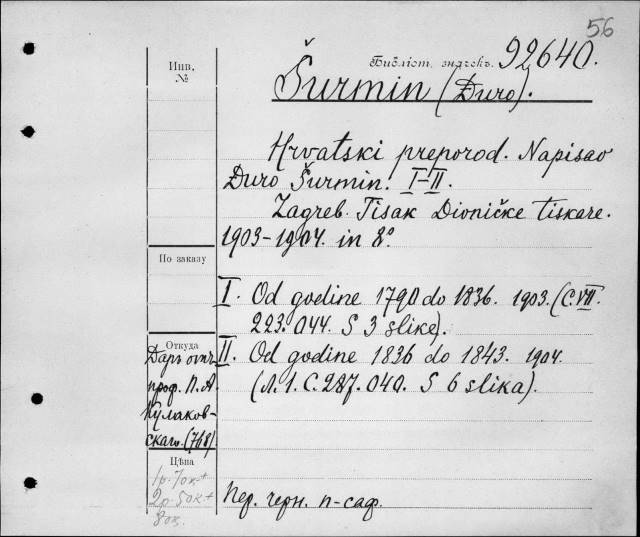 56
Библіот. значекъ. 92640.
Инв.
№
Šurmin (Đuro).
Hrvatski preporod. Napisao
Đuro Šurmin. I-II.
Zagreb. Tisak Dioničke tiskare.
1903-1904. in 8°
По заказу
I. Od godine 1790 do 1836. 1903. (С. VII.
223. 044. S 3 slike).
Откуда
II. Od godine 1836 do 1843. 1904.
(Л. 1. С. 287. 040. S 6 slika).
Даръ
проф. П. А.
Кулаков-
скаго. (768)
Цѣна
1р. 70к +
2р. 50к +
80к.
Пер. черн. п-саф.